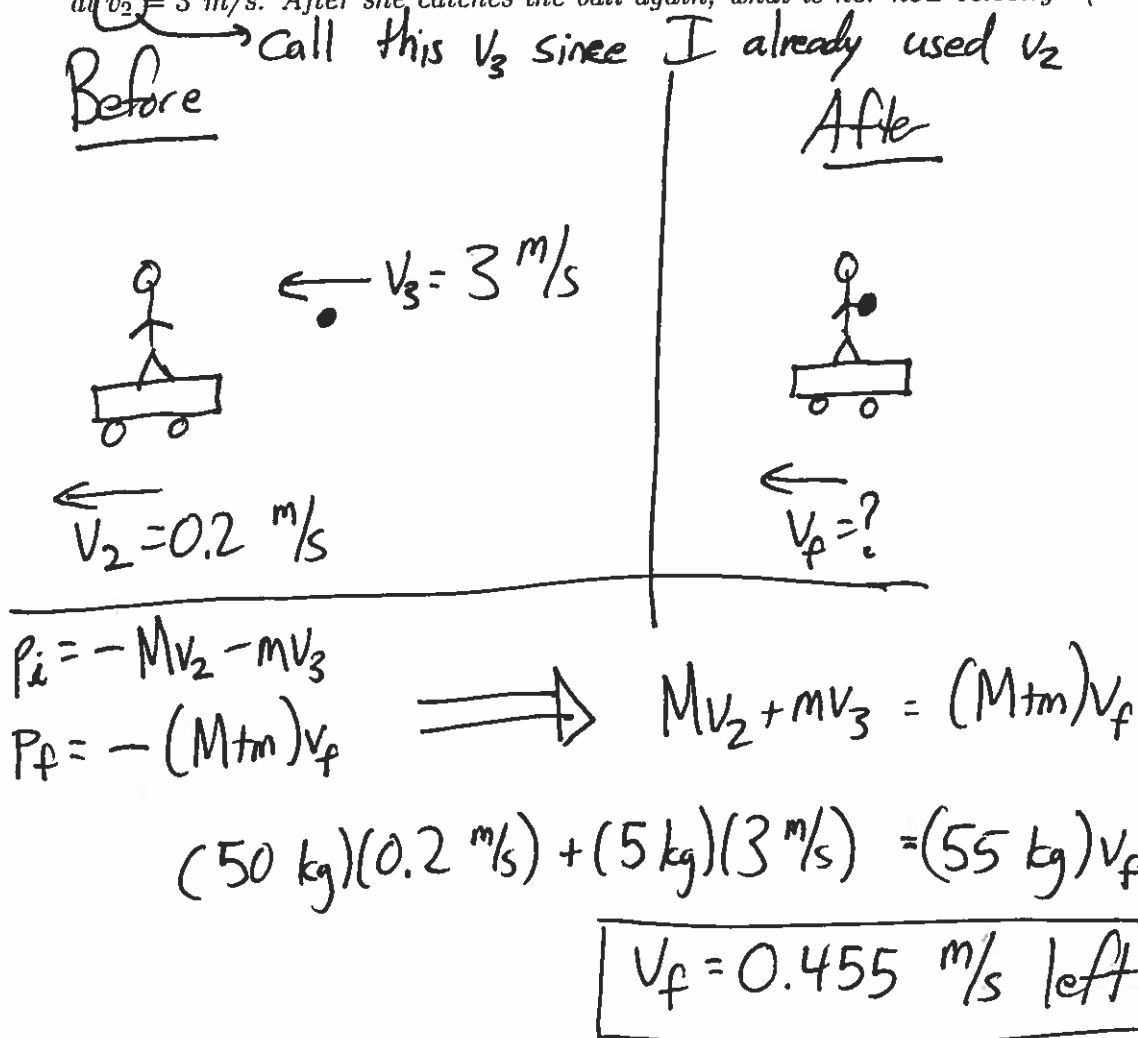 at v₂ = 3 m/s. After she catches the ball again, what is her
Call this V₃ since I already used V₂
Before
After
V₃ = 3 m/s
V₂ = 0.2 m/s
V_f = ?
P_i = - MV₂ - mV₃
P_f = - (M+m)V_f
MV₂ + mV₃ = (M+m)V_f
(50 kg)(0.2 m/s) + (5 kg)(3 m/s) = (55 kg)V_f
V_f = 0.455 m/s left